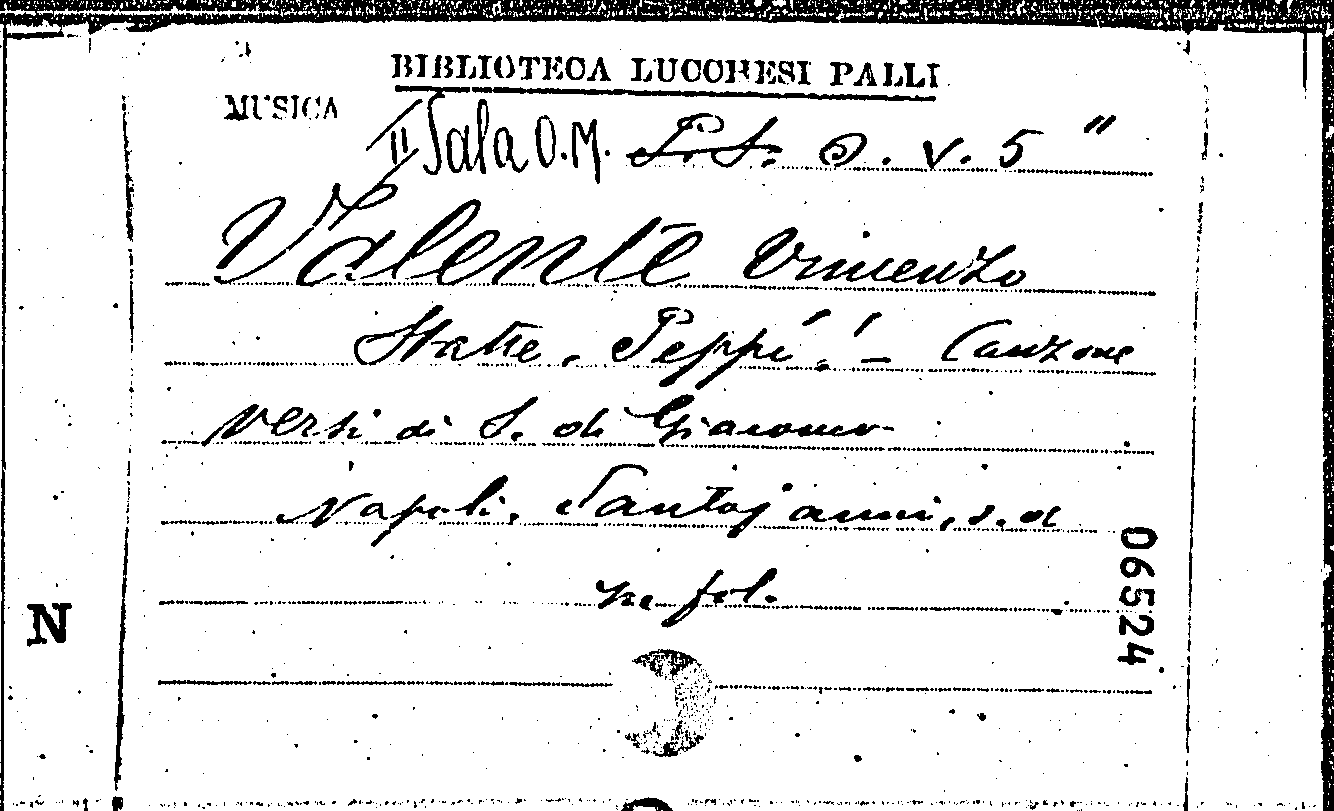 BIBLIOTECA LUCCHESI PALLI
MUSICA
II Sala O.M. P.S. O. V. 5 "
Valente Vincenzo
Statte, Peppì! – Canzone
versi di S. di Giacomo
Napoli, Santojanni, s. d
in fol.
N
06524